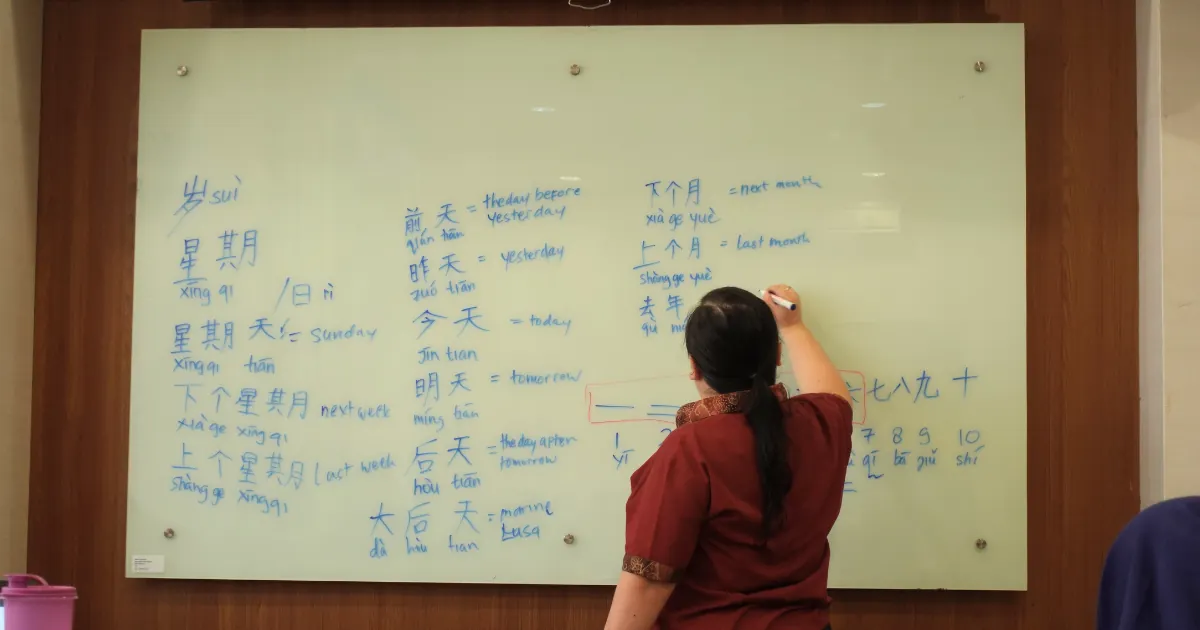 岁 suì
星期
xīng qi
/日 rì
星期天 = Sunday
xīng qi tiān
下个星期 next week
xià ge xīng qi
上个星期 last week
shàng ge xīng qi
前天 = the day before
yesterday
qián tiān
昨天 = yesterday
zuó tiān
今天 = today
jīn tian
明天 = tomorrow
míng
后天 = the day after
tomorrow
hòu tiān
大后天 =
lusa
dà hòu tian
下个月 = next month
xià ge yuè
上个月 = last month
shàng ge yuè
去年
qù
一 二 六 七 八 九 十
1 7 8 9 10
yī qī bā jiǔ shí